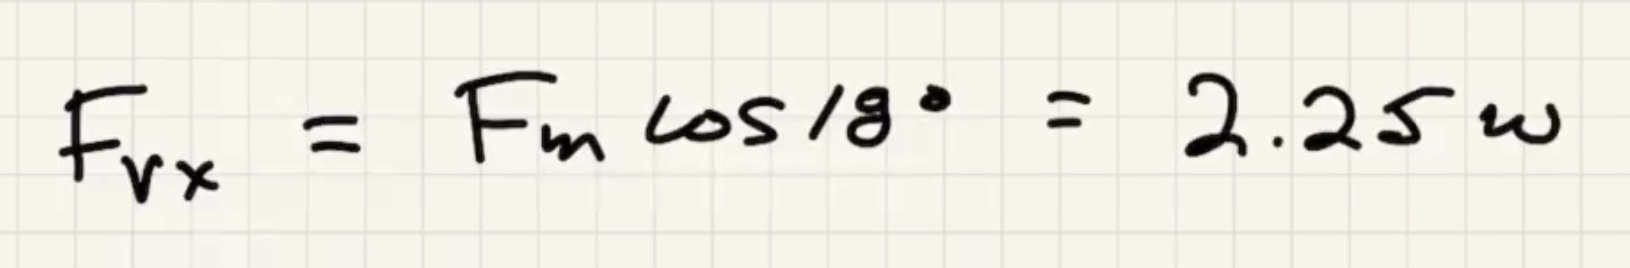 Fvx = Fm cos 18° = 2.25 w